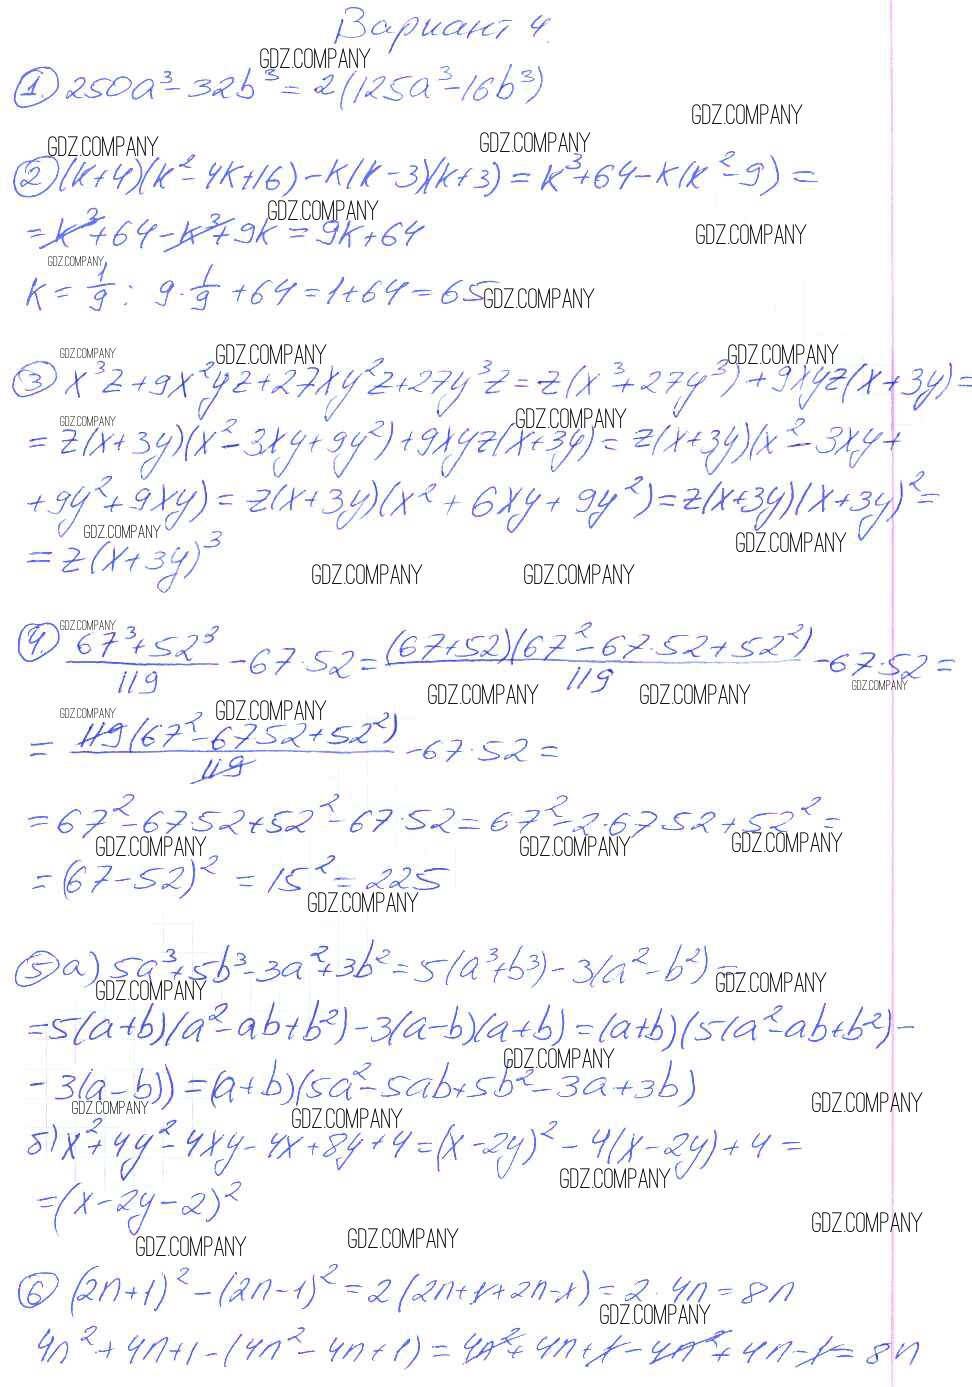 Вариант 4.
GDZ.COMPANY
① 250a³ - 32b³ = 2(125a³ - 16b³)
GDZ.COMPANY
GDZ.COMPANY GDZ.COMPANY
② (k+4)(k² - 4k+16) - k(k-3)(k+3) = k³+64 - k(k²-9) =
GDZ.COMPANY
= k³+64 - k³+9k = 9k+64
GDZ.COMPANY
GDZ.COMPANY
k = 1/9 : 9·1/9 + 64 = 1+64 = 65
GDZ.COMPANY
GDZ.COMPANY GDZ.COMPANY GDZ.COMPANY
③ x³z + 9x²yz + 27xy²z + 27y³z = z(x³+27y³) + 9xyz(x+3y) =
GDZ.COMPANY GDZ.COMPANY
= z(x+3y)(x² - 3xy + 9y²) + 9xyz(x+3y) = z(x+3y)(x² - 3xy +
+ 9y² + 9xy) = z(x+3y)(x² + 6xy + 9y²) = z(x+3y)(x+3y)² =
GDZ.COMPANY GDZ.COMPANY
= z(x+3y)³
GDZ.COMPANY GDZ.COMPANY
GDZ.COMPANY
④ (67³+52³)/119 - 67·52 = (67+52)(67² - 67·52 + 52²)/119 - 67·52 =
GDZ.COMPANY GDZ.COMPANY GDZ.COMPANY
GDZ.COMPANY GDZ.COMPANY
= 119(67² - 67 52 + 52²)/119 - 67·52 =
= 67² - 67·52 + 52² - 67·52 = 67² - 2·67 52 + 52² =
GDZ.COMPANY GDZ.COMPANY GDZ.COMPANY
= (67-52)² = 15² = 225
GDZ.COMPANY
⑤ а) 5a³+5b³ - 3a²+3b² = 5(a³+b³) - 3(a² - b²) =
GDZ.COMPANY GDZ.COMPANY
= 5(a+b)(a² - ab + b²) - 3(a-b)(a+b) = (a+b)(5(a² - ab + b²) -
GDZ.COMPANY
- 3(a-b)) = (a+b)(5a² - 5ab + 5b² - 3a + 3b)
GDZ.COMPANY GDZ.COMPANY GDZ.COMPANY
б) x² + 4y² - 4xy - 4x + 8y + 4 = (x-2y)² - 4(x-2y) + 4 =
GDZ.COMPANY
= (x-2y-2)²
GDZ.COMPANY GDZ.COMPANY GDZ.COMPANY
⑥ (2n+1)² - (2n-1)² = 2(2n+1+2n-1) = 2·4n = 8n
GDZ.COMPANY
4n² + 4n+1 - (4n² - 4n+1) = 4n² + 4n + 1 - 4n² + 4n - 1 = 8n